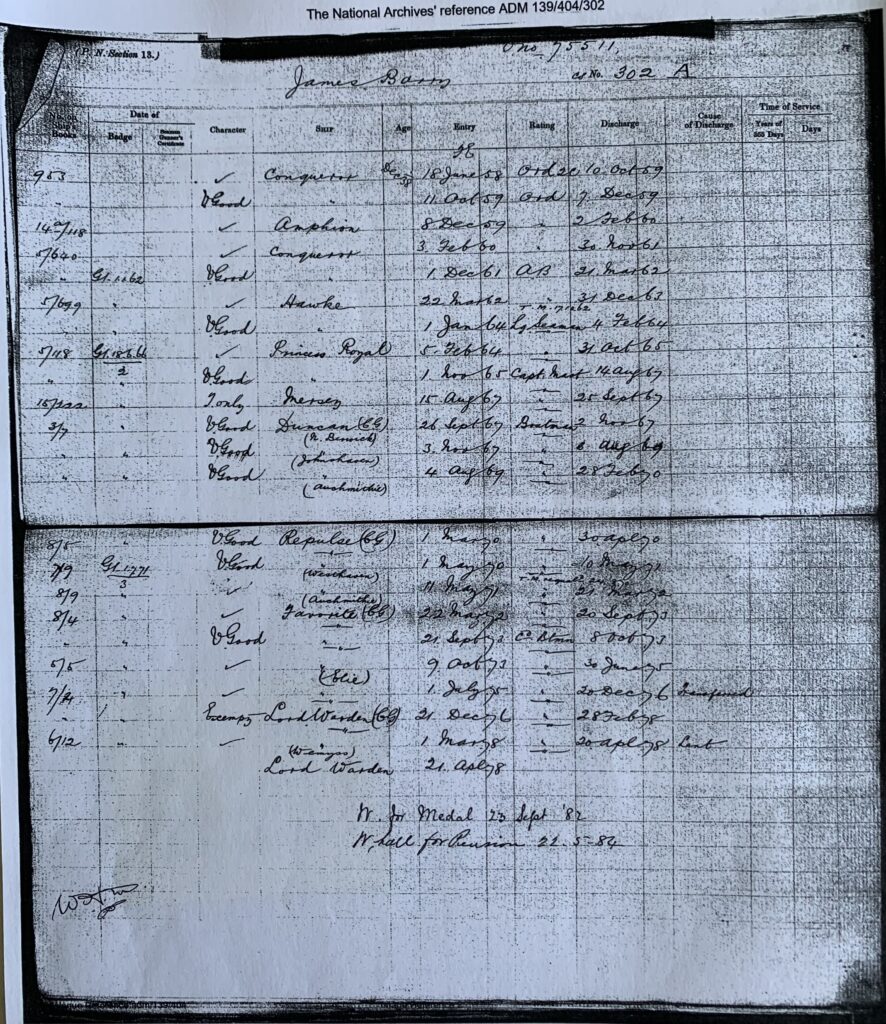 The National Archives' reference ADM 139/404/302
(P. N. Section 13.)
75511.
James Barry
CS No. 302 A
Date of
Time of Service
Books
Badge
Seaman Gunner's Certificate
Character
Ship
Age
Entry
Rating
Discharge
Cause of Discharge
Years of 365 Days
Days
953 ✓ Conqueror 18 June 58 Ord 2C 10 Oct 59
V Good " 11 Oct 59 Ord 7 Dec 59
✓ Amphion 8 Dec 59 " 2 Feb 60
5/640 ✓ Conqueror 3 Feb 60 " 30 Nov 61
V Good " 1 Dec 61 AB 21 Mar 62
5/699 " ✓ Hawke 22 Mar 62 " 31 Dec 63
" V Good " 1 Jan 64 Lg Seaman 4 Feb 64
5/118 ✓ Princess Royal 5 Feb 64 " 31 Oct 65
2
" " V Good " 1 Nov 65 Capt Mast 14 Aug 67
15/222 " Mersey 15 Aug 67 " 25 Sept 67
3/7 " V Good Duncan (CG) 26 Sept 67 Boatman 2 Nov 67
(N. Berwick)
" " V Good " 3 Nov 67 " Aug 69
(Johnshaven)
" " V Good 4 Aug 69 " 28 Feb 70
(Auchmithie)
8/5 " V Good Repulse (CG) 1 Mar 70 " 30 apl 70
"
7/9 V Good 1 May 70 " 10 May 71
3
(Westhaven)
8/9 " ✓ " 11 May 71 " 21 Mar 72
(Auchmithie)
8/4 " ✓ Favorite (CG) 22 Mar 72 " 20 Sept 73
"
" V Good " 21 Sept 73 Cd Btmn 8 Oct 73
5/5 " ✓ " 9 Oct 73 " 30 June 75
(Elie)
7/24 " ✓ " 1 July 75 " 20 Dec 76 Transferred
Exempy Lord Warden (CG) 21 Dec 76 " 28 Feb 78
"
6/12 " ✓ 1 Mar 78 " 20 apl 78 Lent
(Wemyss)
Lord Warden 21 apl 78
W. for Medal 23 Sept '82
W, hall for Pension 22.5.84